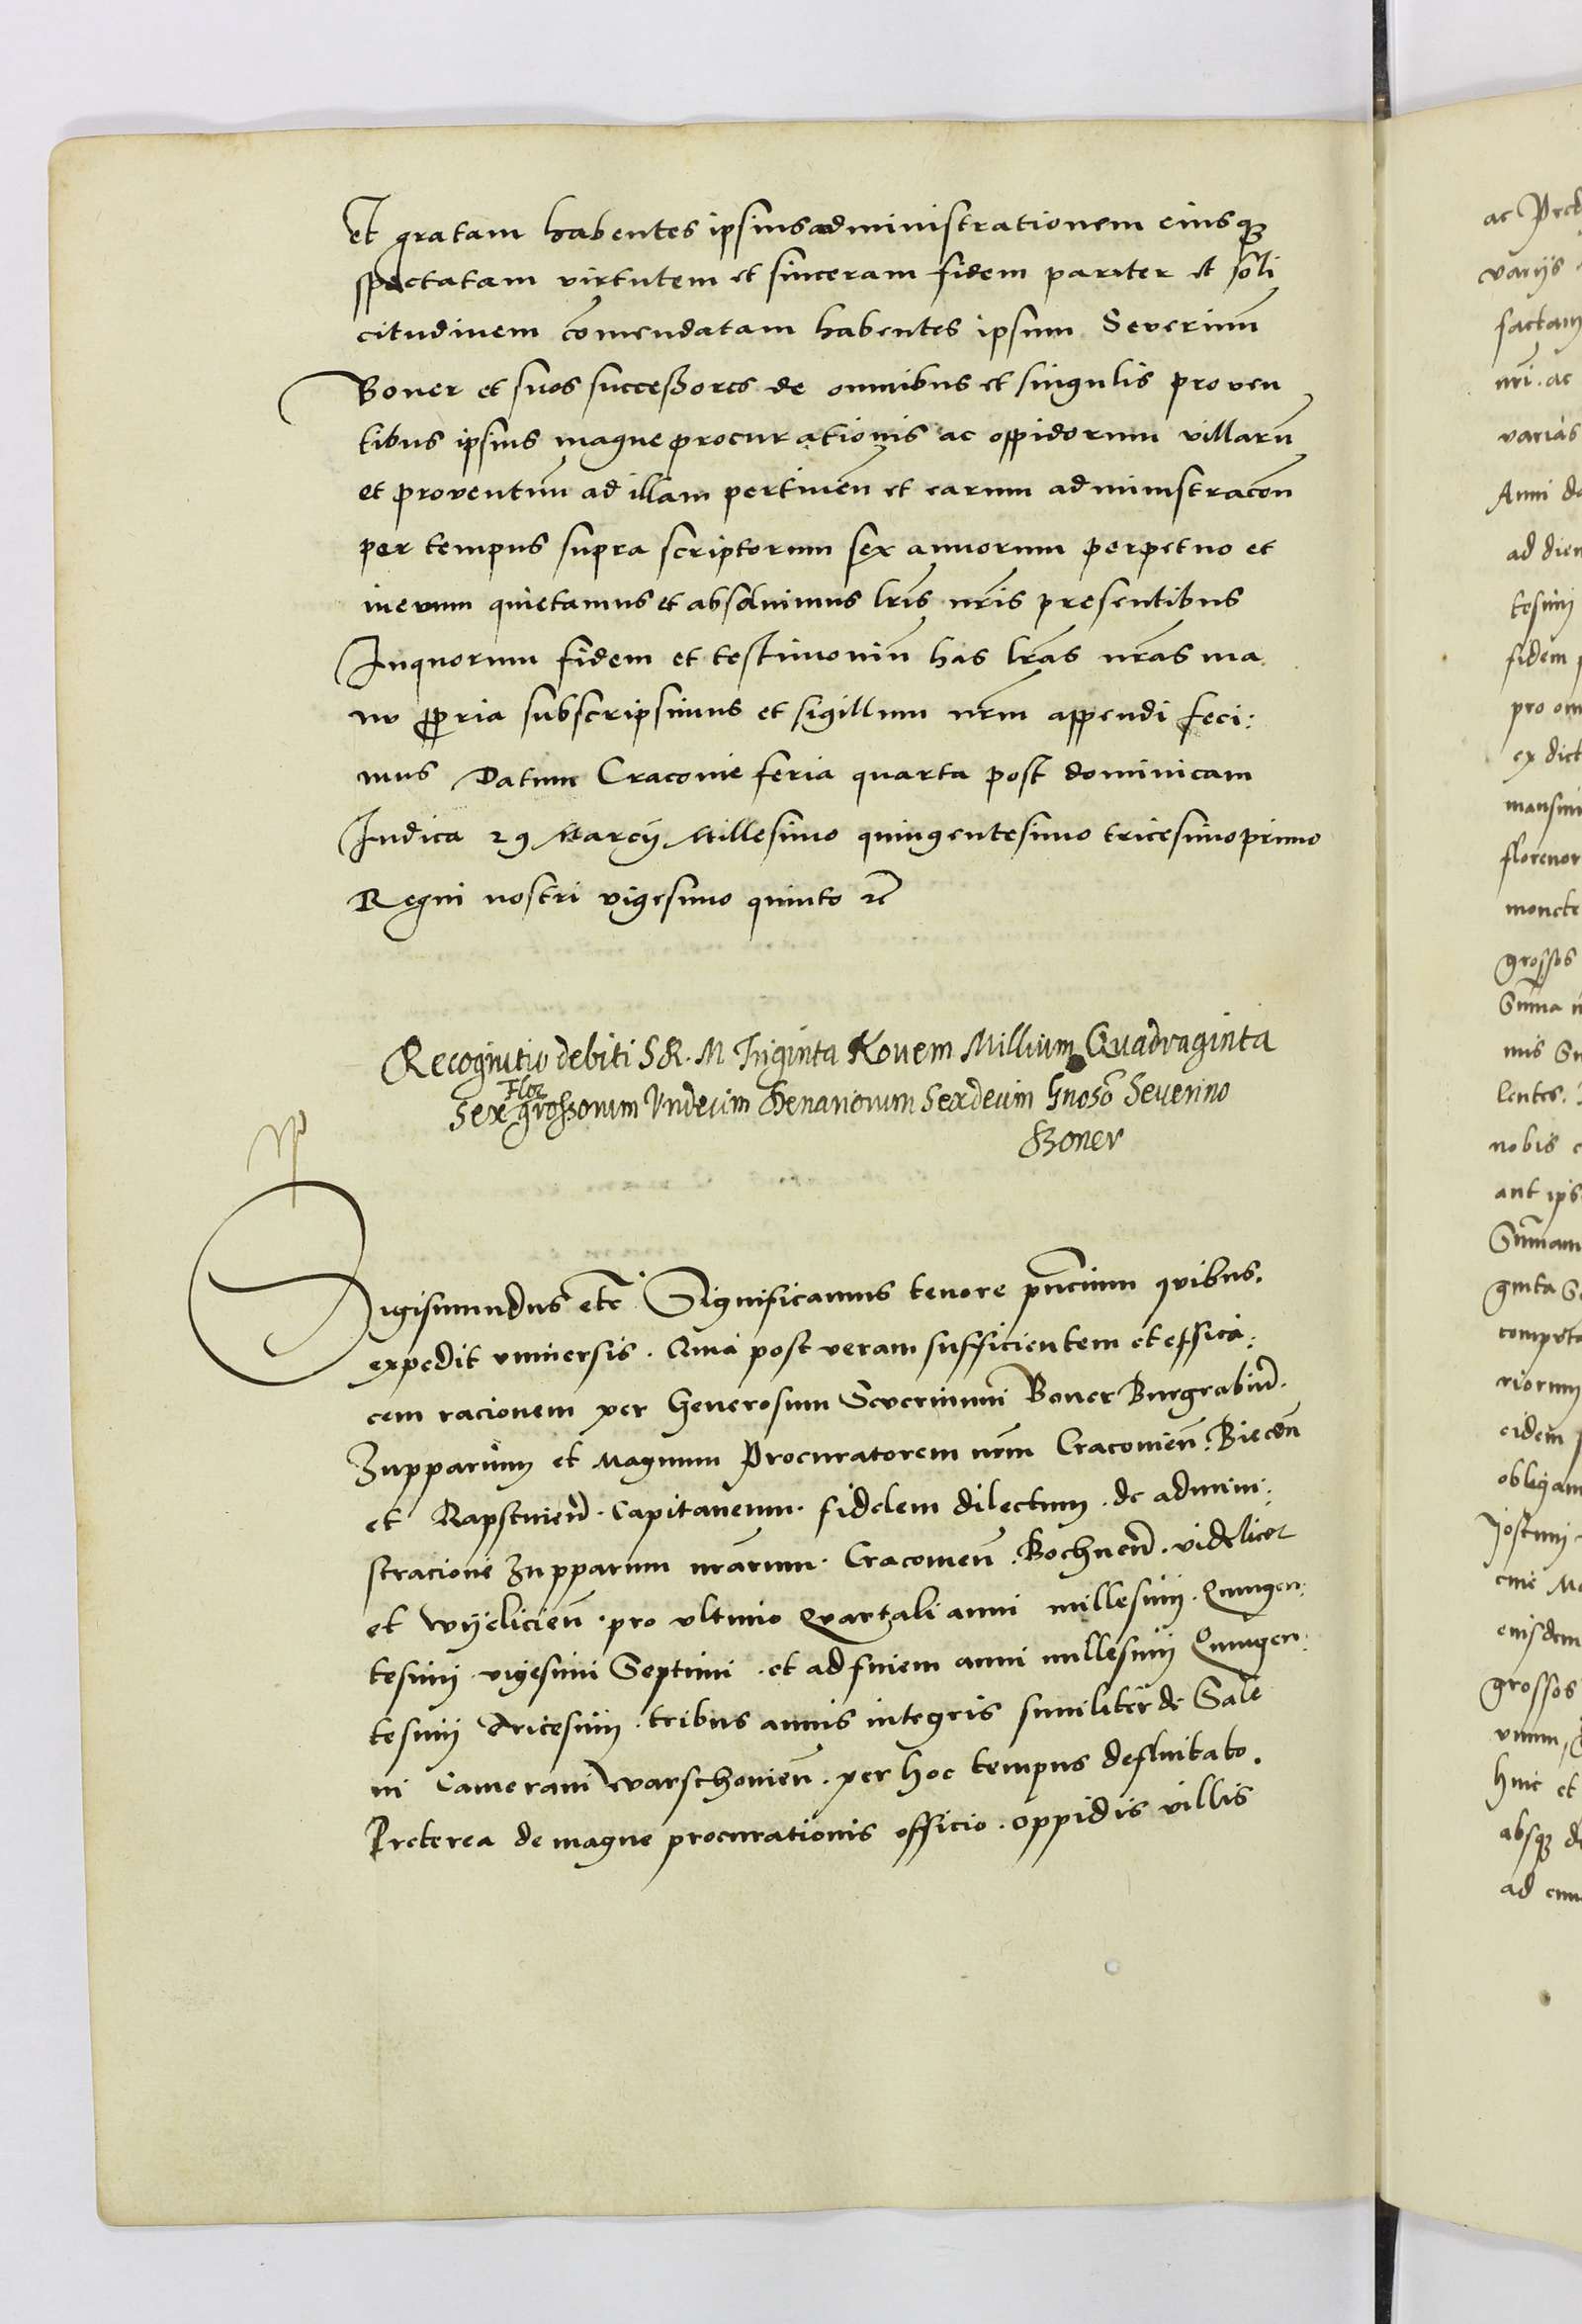 et gratam habentes ipsius administrationem eiusqȝ
spectatam virtutem et sinceram fidem pariter et soli
citudinem com̄endatam habentes ipsum Severinū
Boner et suos successores de omnibus et singulis proven
tibus ipsius magne procurationis ac oppidorum villarū
et proventuū ad illam pertineñ et earum administracoñ
per tempus supra scriptorum sex annorum perpetuo et
inevum quietamus et absolvimus lr̄is nr̄is presentibus
Inquorum fidem et testimoniū has lr̄as nr̄as ma
nu ꝓpria subscripsimus et sigillum nr̄m appendi feci:
mus Datum Cracovie feria quarta post dominicam
Judica 29 Marcij Millesimo quingentesimo tricesimoprimo
Regni nostri vigesimo quinto ꝛc
Recognitio debiti S R. M Triginta Novem Millium Quadraginta
Flor
Sex grossorum Vndecim Denariorum Sexdecim Gnoso Severino
Boner
Sigismundus etc̄ Significamus tenore pn̄cium quibus.
expedit vniversis. Quia post veram sufficientem et effica:
cem racionem per Generosum Severinum Boner Burgrabiū.
Zupparium et Magnum Procuratorem nr̄m Cracovieñ. Bieceñ
et Rapstinieñ. Capitaneum. fidelem dilectum. de admini:
stracione Zupparum nr̄arum. Cracovieñ. Bochneñ. videlicet
et Wyelicieñ. pro vltimo Quartali anni millesimi. Quingen:
tesimi vigesimi Septimi. et ad finem anni millesimi Quingen:
tesimi Tricesimi. tribus annis integris similiter de Sale
in Cameram Warschovieñ. per hoc tempus defluitato.
Preterea de magne procurationis officio. oppidis villis
ac
variis
factam
nr̄i. ac
varias
Anni
ad diem
tesimi
fidem
ex dict
grossos
Sum̄a
lentes.
nobis
Sum̄am
ginta
riorum
eidem
eiusdem
grossos
vnum,
huic et
absqȝ
ad